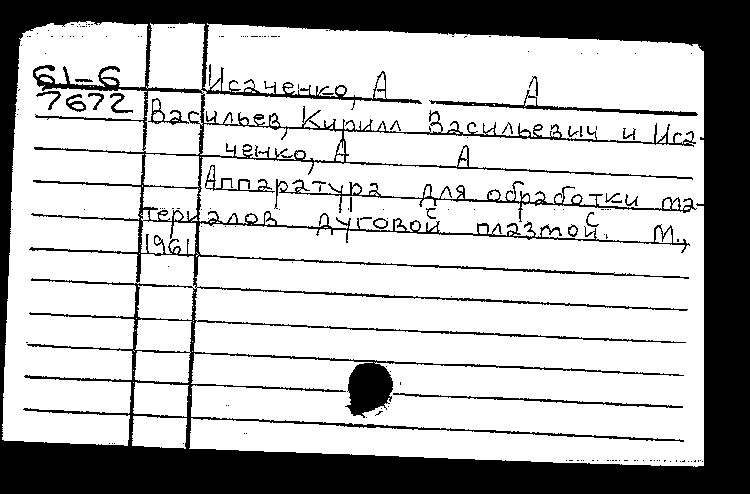 61-6 Исаченко, А А
7672 Васильев, Кирилл Васильевич и Иса-
ченко, А А
Аппаратура для обработки ма-
териалов дуговой плазмой. М.,
1961